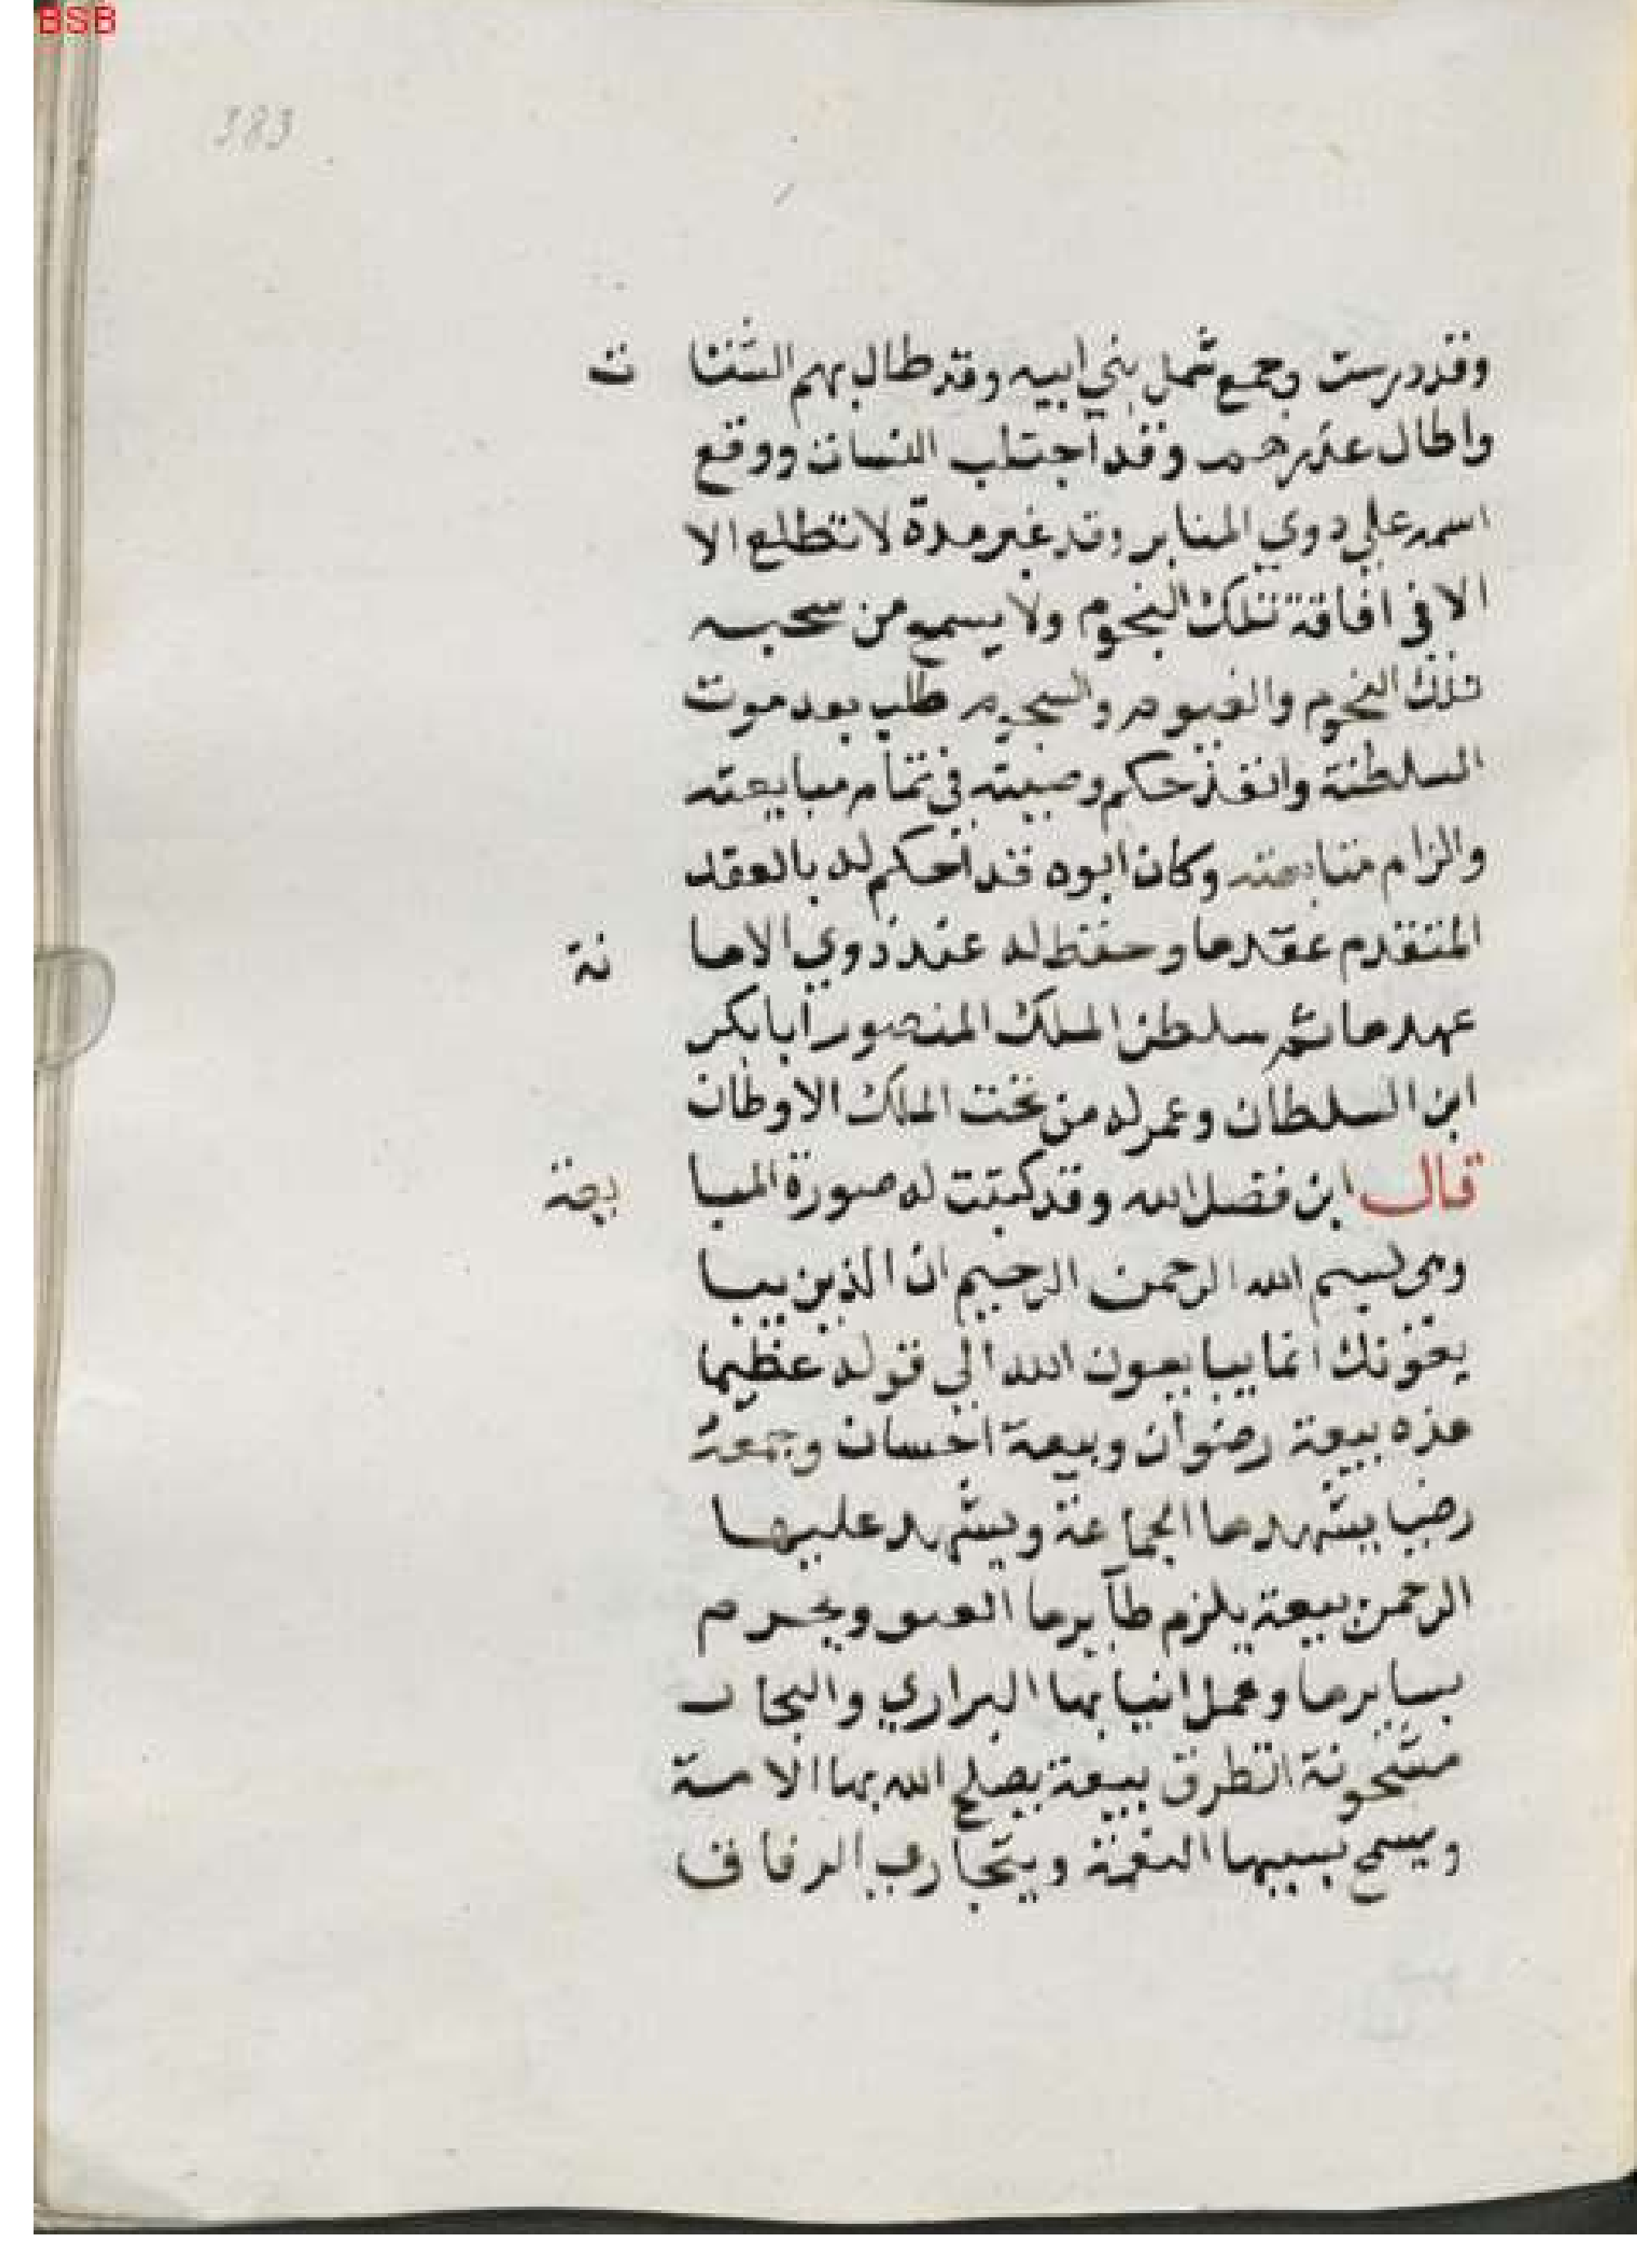 BSB
383
وقد درست وجمع شمل بني ابيه وقد طال بهم الشتات
واطال عذرهم وقد اجتلب النسان ووقع
اسمه علي دوي المنابر وقد غبر مدة لا تطلع الا
الا في افاقة تلك النجوم ولا يسمع من سحبه
تلك النجوم والغيوم والسجوم طلب بعد موت
السلطنة وانفذ حكم وصيته في تمام مبايعته
والزام متابعته وكان ابوه قد احكم له بالعقد
المتقدم عقدها وحفظ له عند ذوي الامانة
عهدها ثم سلطن الملك المنصور ابا بكر
ابن السلطان وعمر له من تخت الملك الاوطان
قال ابن فضل الله وقد كتبت له صورة المبايعة
وهي بسم الله الرحمن الرحيم ان الذين يبا
يعونك انما يبايعون الله الي قوله عظيما
هذه بيعة رضوان وبيعة احسان وجمعة
رضي يشهدها الجماعة ويشهد عليها
الرحمن بيعة يلزم طآيرها العىى ويحوم
بسايرها وعمل انبابها البراري والبحار
مشحونة الطرق بيعة يصلح الله بها الامة
ويسمح بسببها النعمة ويتجارب الرفاق